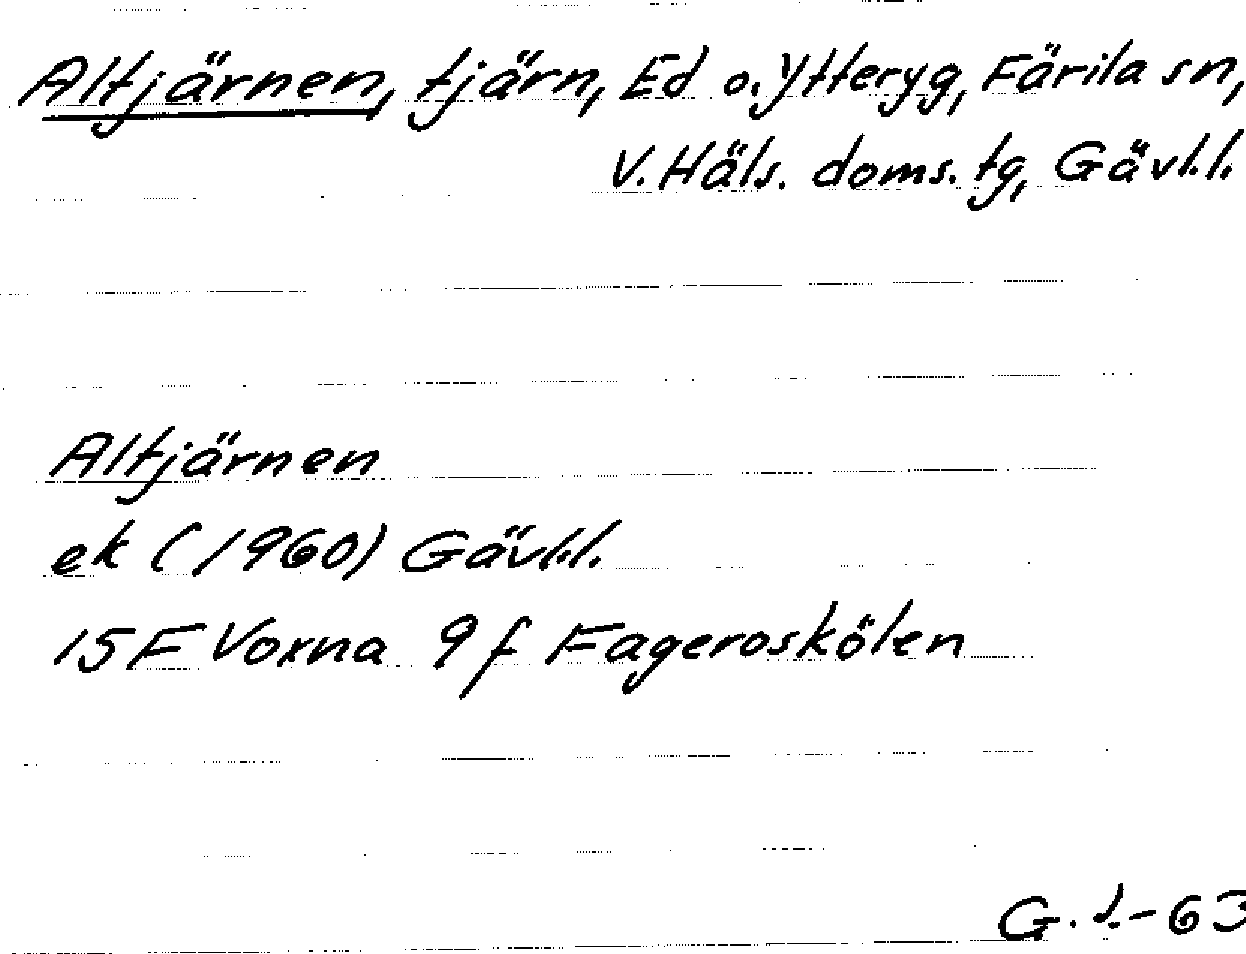 Altjärnen, tjärn, Ed o. Ytteryg, Färila sn,
V. Häls. doms. tg, Gävl.l.
Altjärnen
ek (1960) Gävl.l.
15F Voxna 9f Fageroskölen
G. -63